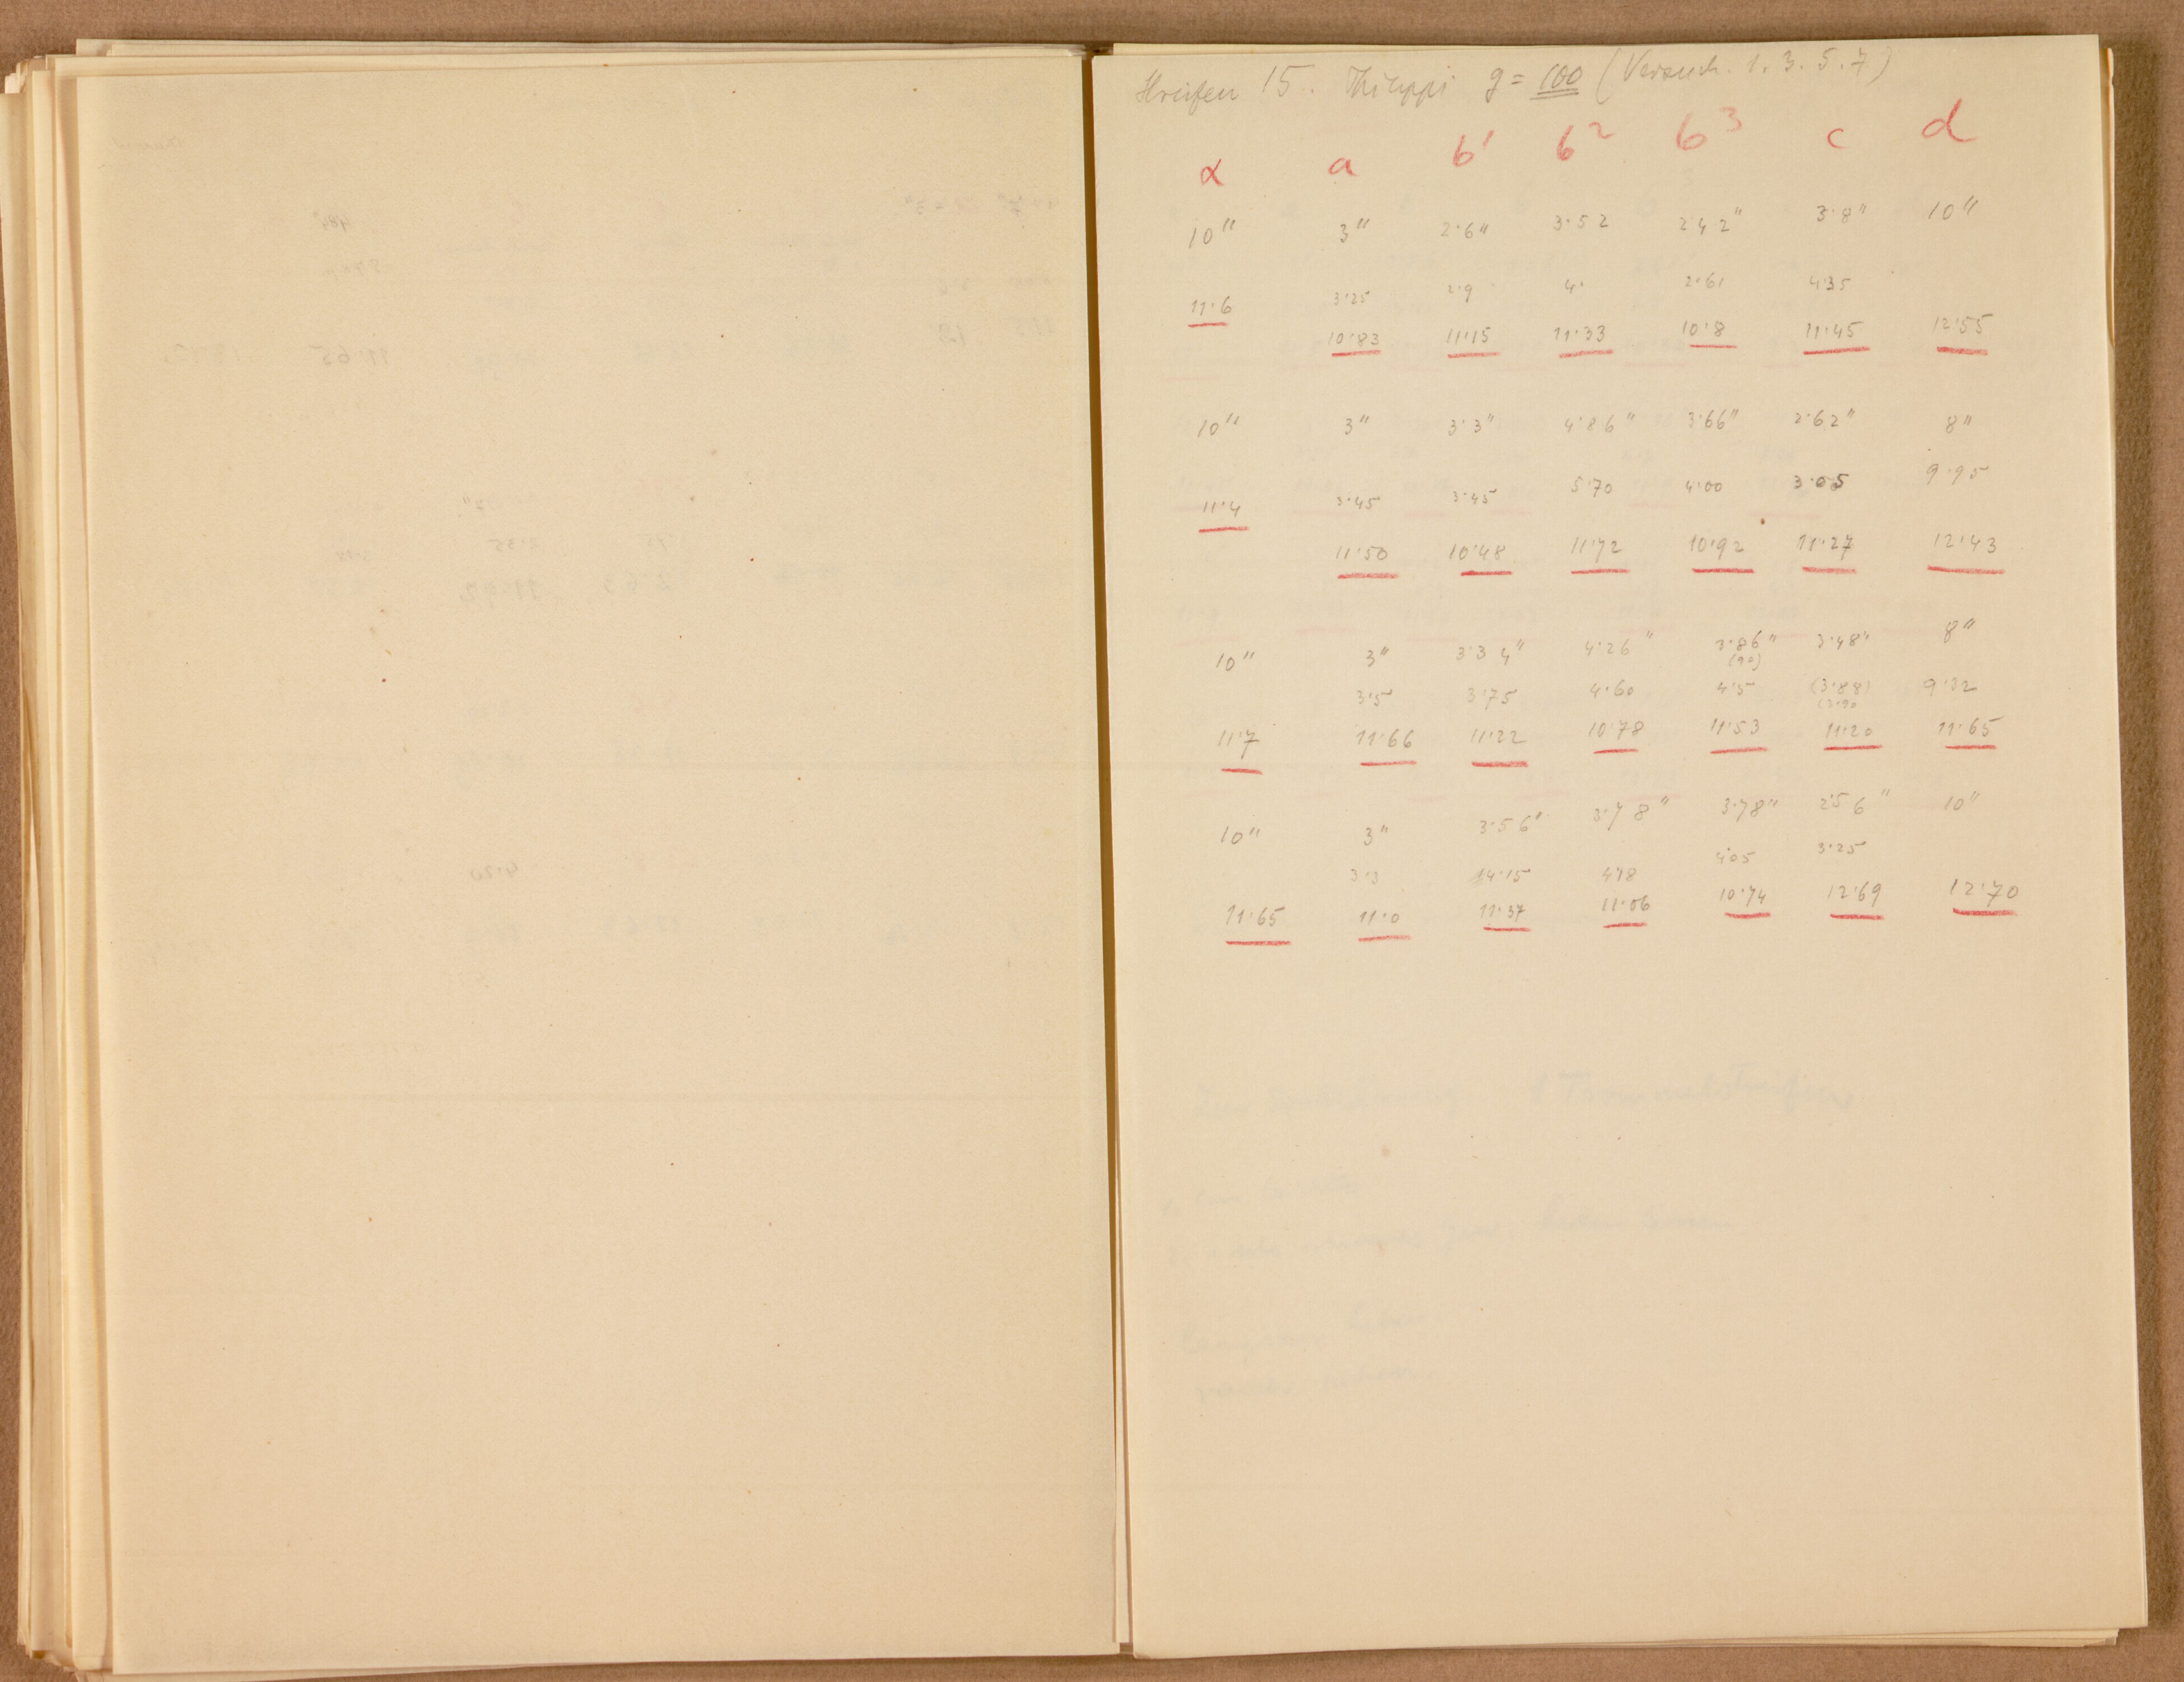 Streifen 15. Philippi g = 100 (Versuch. 1. 3. 5. 7)
α a b¹ b² b³ c d
10" 3" 2·6" 3·52 2·42" 3·8" 10"
11·6 3·25 2·9 4· 2·61 4·35
10·83 11·15 11·33 10·8 11·45 12·55
10" 3" 3·3" 4·86" 3·66" 2·62" 8"
11·4 3·45 3·45 5·70 4·00 3·05 9·95
11·50 10·48 11·72 10·92 11·27 12·43
10" 3" 3·34" 4·26" 3·86" 3·48" 8"
(90)
3·5 3·75 4·60 4·5 (3·88) 9·32
(3·90
11·7 11·66 11·22 10·78 11·53 11·20 11·65
10" 3" 3·56" 3·78" 3·78" 2·56" 10"
3·3 4·15 4·18 4·05 3·25
11·65 11·0 11·37 11·06 10·74 12·69 12·70